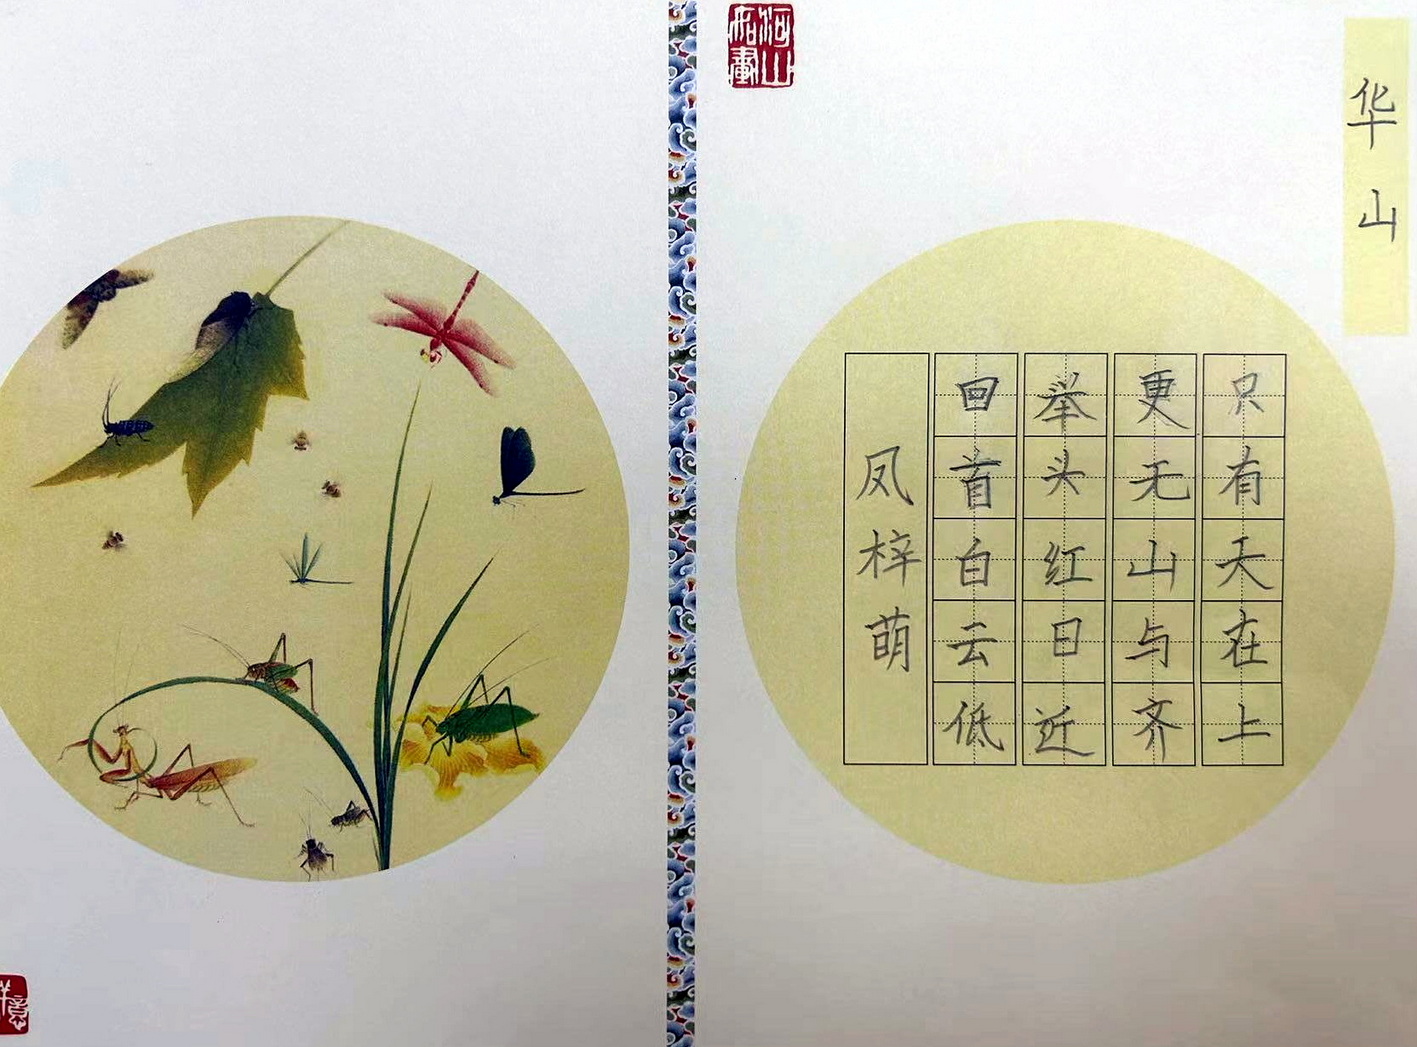 华山
只有天在上
更无山与齐
举头红日近
回首白云低
凤梓萌
河山如画